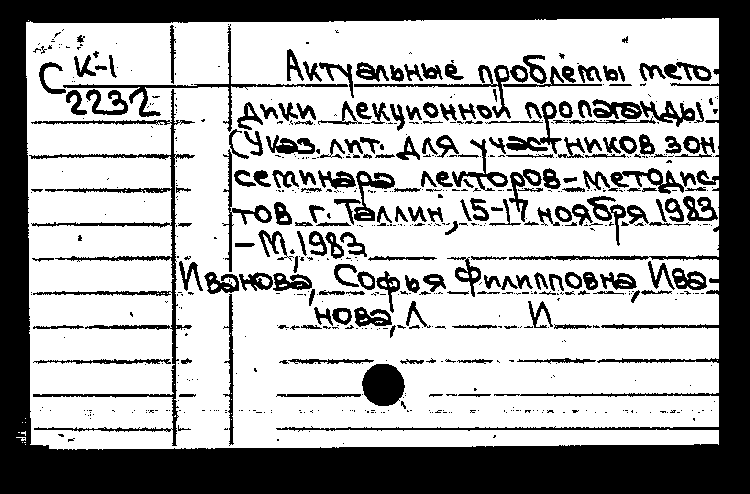 С К-1
2232
Актуальные проблемы мето-
дики лекционной пропаганды:
(Указ. лит. для участников зон.
семинара лекторов-методис-
тов г. Таллин, 15-17 ноября 1983
-М. 1983
Иванова, Софья Филипповна, Ива-
нова, Л И